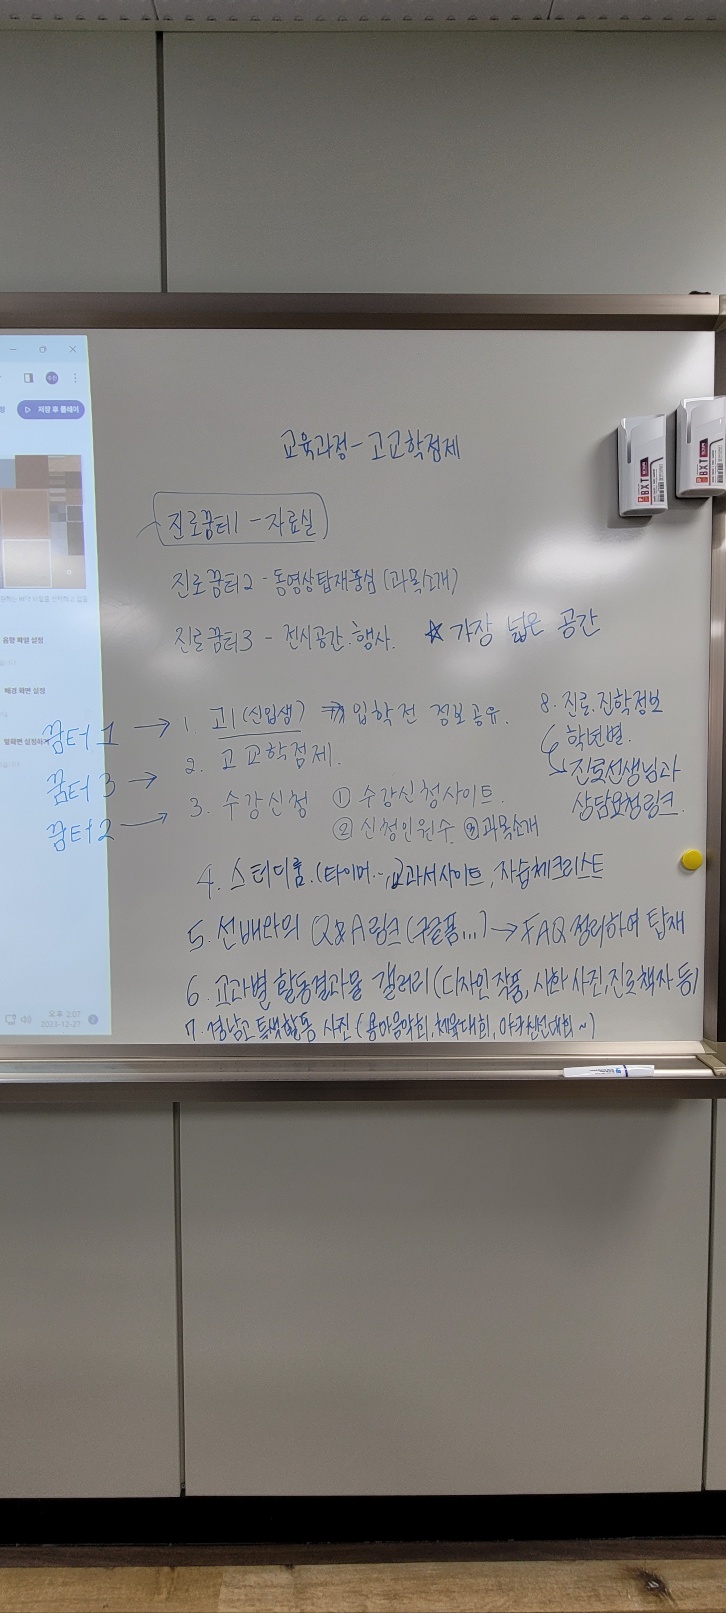 저장 후 플레이
음향 파일 설정
배경 화면 설정
오후 2:07
2023-12-27
교육과정 - 고교학점제
진로꿈터1 - 자료실
진로꿈터2 - 동영상탑재중심 (과목소개)
진로꿈터3 - 전시공간.행사. ☆ 가장 넓은 공간
꿈터 1 → 1. 고1 (신입생) ⇒ 입학전 정보공유.
꿈터 3 → 2. 고교학점제.
꿈터2 → 3. 수강신청 ① 수강신청사이트.
② 신청인원수 ③ 과목소개
8. 진로.진학정보
학년별.
→ 진로선생님과
상담요청링크.
4. 스터디룸.(타이머..., 교과서사이트, 자습체크리스트
5. 선배와의 Q&A링크(구글폼...) → FAQ 정리하여 탑재
6. 교과별 활동결과물 갤러리(디자인 작품, 시화 사진, 진로책자 등)
7. 경남고 특색활동 사진 (용마음악회, 체육대회, 야구친선대회~)
BXT
BXT